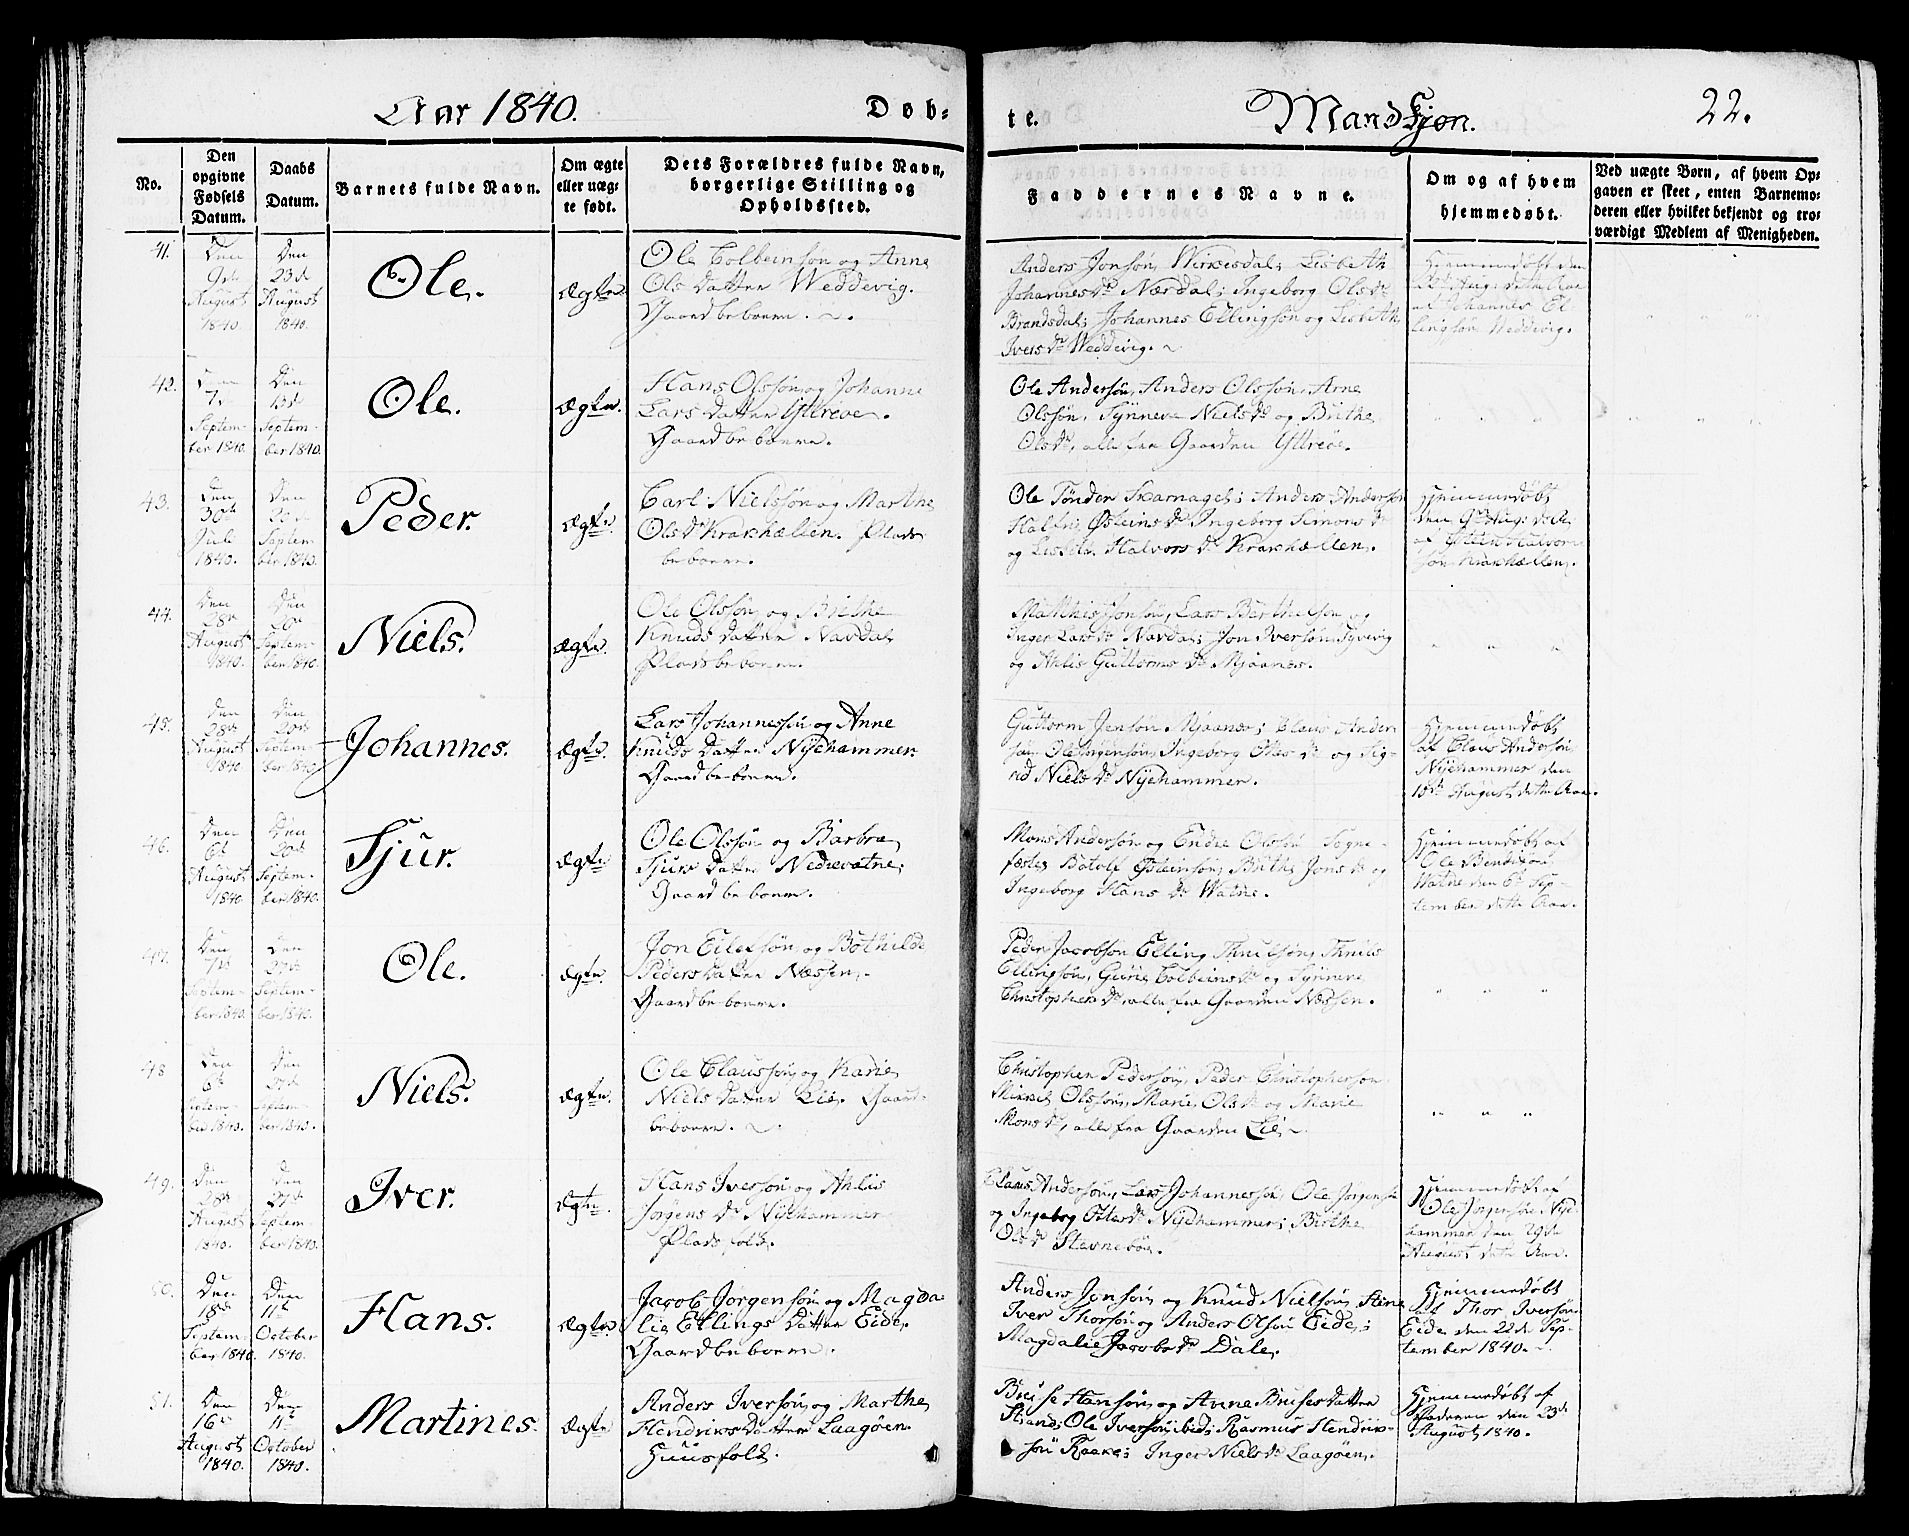 Aar 1840.
Døb-
te.
Mandkjøn.
22.
No.
Den opgivne Fødsels Datum.
Daabs Datum.
Barnets fulde Navn.
Om ægte eller uægte født.
Dets Forældres fulde Navn, borgerlige Stilling og Opholdssted.
Faddernes Navne.
Om og af hvem hjemmedøbt.
Ved uægte Børn, af hvem Op-
gaven er skeet, enten Barnemo-
deren eller hvilket bekjendt og tro-
værdigt Medlem af Menigheden.
41.
Den 9de August 1840.
Den 23de August 1840.
Ole.
ægte.
Ole Colbeinsøn og Anne
Olsdatter Weddevig.
Gaardbeboere.
Anders Jonsøn, Lisbeth
Johannesdr Nærdal; Ingeborg Olsdr
Brandsdal; Johannes Ellingsøn og Lisbeth
Iversdr Weddevig.
Hjemmedøbt den
dette Aar
af Johannes El-
lingsøn Weddevig.
42.
7de September 1840.
Den 13de September 1840.
Ole.
ægte.
Hans Olssøn og Johanne
Larsdatter Yttreøe.
Gaardbeboere.
Ole Andersøn, Anders Olssøn, Arne
Olssøn, Synneve Nielsdr og Brithe
Olsdr, alle fra Gaarden Yttreøe.
43.
Den 30te Juli 1840.
Den September 1840.
Peder.
ægte.
Carl Nielssøn og Marthe
Olsdr Krakhællen. Plads-
beboere.
Ole Tønder Skarnaget; Anders Andersøn
Østeinsdr Ingeborg Simonsdr
og Halvorsdr Krakhællen.
Hjemmedøbt
den 9de Aug: d. A.
af Østein Halvor-
søn Krakhællen.
44.
Den 28de August 1840.
Den 20de September 1840.
Niels.
ægte.
Ole Olssøn og Brithe
Knudsdatter Navdal
Pladsbeboere.
Matthis Jonsøn, Lars Berthelsøn og
Inger Larsdr Navdal; Jon Iversøn
og Ahlis Guttormsdr Mjaanes.
45.
Den August 1840
Den 20de September 1840
Johannes.
ægte.
Lars Johannessøn og Anne
Knudsdatter Nyehammer.
Gaardbeboere.
Guttorm Jensøn Mjaanes; Claus Ander-
søn, Ole Jørgensøn, Ingeborg og Sig-
rid Nielsdr Nyehammer.
Hjemmedøbt
af Claus Andersøn
Nyehammer den
August dette Aar.
46.
Den 6te August 1840
Den 20de September 1840.
Sjur.
ægte
Ole Olssøn og Barbra
Sjursdatter Nedrevatne.
Gaardbeboere.
Mons Andersøn og Endre Olssøn Sogne-
feste; Botolf Østeinsøn, Brithe Jonsdr og
Ingeborg Hansdr Watne.
Hjemmedøbt af
Ole Bendixsøn
Watne den 6te Sep-
tember dette Aar.
47.
Den 7de September 1840.
Den 27de September 1840.
Ole.
ægte.
Jon Eilersøn og Bothilde
Pedersdatter Næssen.
Gaardbeboere.
Peder Jacobsøn, Elling
Ellingsøn, Gurie Colbeinsdr og Synneve
Christophersdr, alle fra Gaarden Næssen.
48
Den 6te September 1840.
Den 27de September 1840.
Niels.
ægte.
Ole Claussøn og Karie
Nielsdatter Lie. Gaard-
beboere.
Christopher Pedersøn, Peder Christophersøn
Mikkel Olssøn, Marie Olsdr og Marie
Monsdr, alle fra Gaarden Lie.
49.
Den 28de August 1840.
Den 27de September 1840.
Iver.
ægte.
Hans Iversøn og Ahlis
Jørgensdr Nyehammer
Pladsfolk.
Claus Andersøn, Lars Johannessøn, Ole Jørgensøn
og Ingeborg Nyehammer; Birthe
Olsdr Stevnebøe.
Hjemmedøbt af
Ole Jørgensøn Nye-
hammer den 29de
August dette Aar.
50.
Den 18de September 1840.
Den 11te October 1840.
Hans.
ægte.
Jacob Jørgensøn og Magda-
lie Ellingsdatter Eide.
Gaardbeboere.
Anders Jonsøn og Knud Nielsøn
Iver Thorsøn og Anders Olsøn Eide;
Magdalie Jacobsdr Dale.
Hjemmedøbt
af Thor Iversøn
Eide den 22de Sep-
tember 1840.
51.
Den 16de August 1840.
Den 11te October 1840.
Martines.
ægte
Anders Iversøn og Marthe
Hendriksdatter Laagøen.
Huusfolk.
Bruse Hansøn og Anne Brusesdatter
Strand; Ole Iversøn ibid; Rasmus Hendrik-
søn Raake; Inger Nielsdr Laagøen.
Hjemmedøbt af
Faderen den 23de
August 1840.